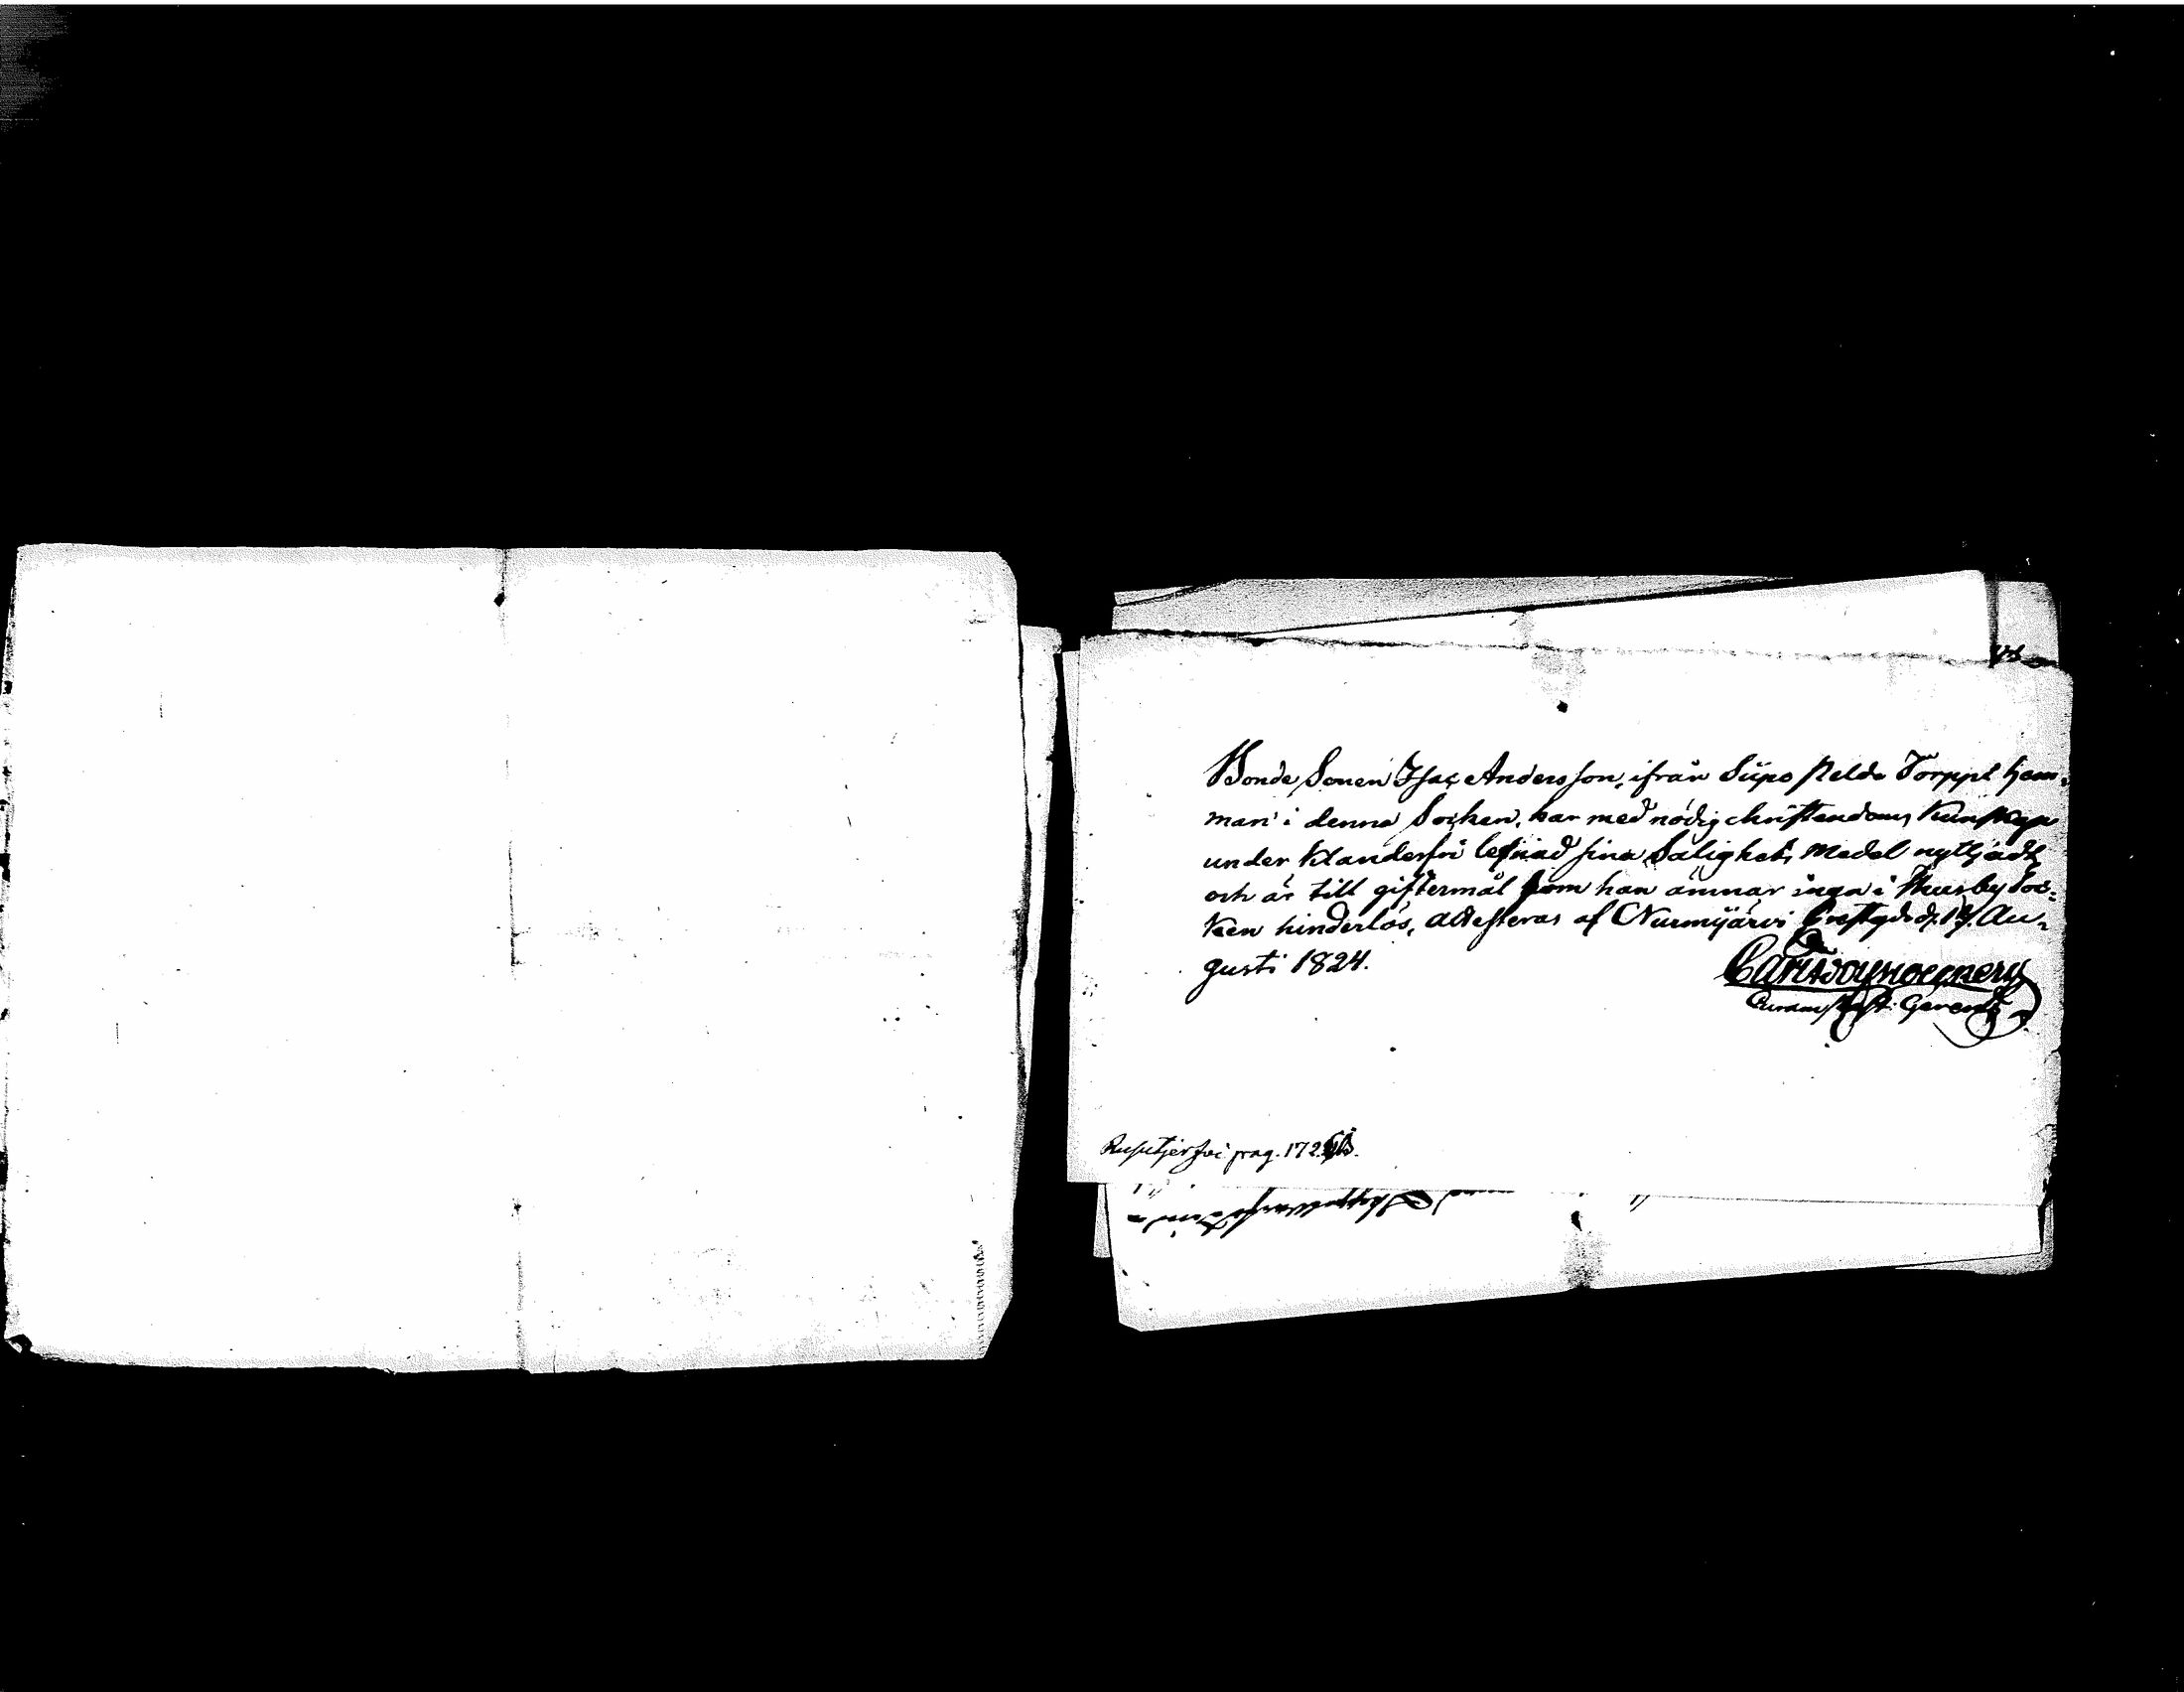 Bonde Sonen Isac Andersson, ifrån Siipo Pelda Torppi hem-
man i denna Socken, har med nödig christendoms kunskap
under klanderfri lefnad sina Salighets Medel nyttjadt
och är till giftermål som han ämnar ingå i Thusby Soc-
ken hinderlös, attesteras af Nurmijärvi Prestgård d. 19. Au-
gusti 1824.
pag. 172